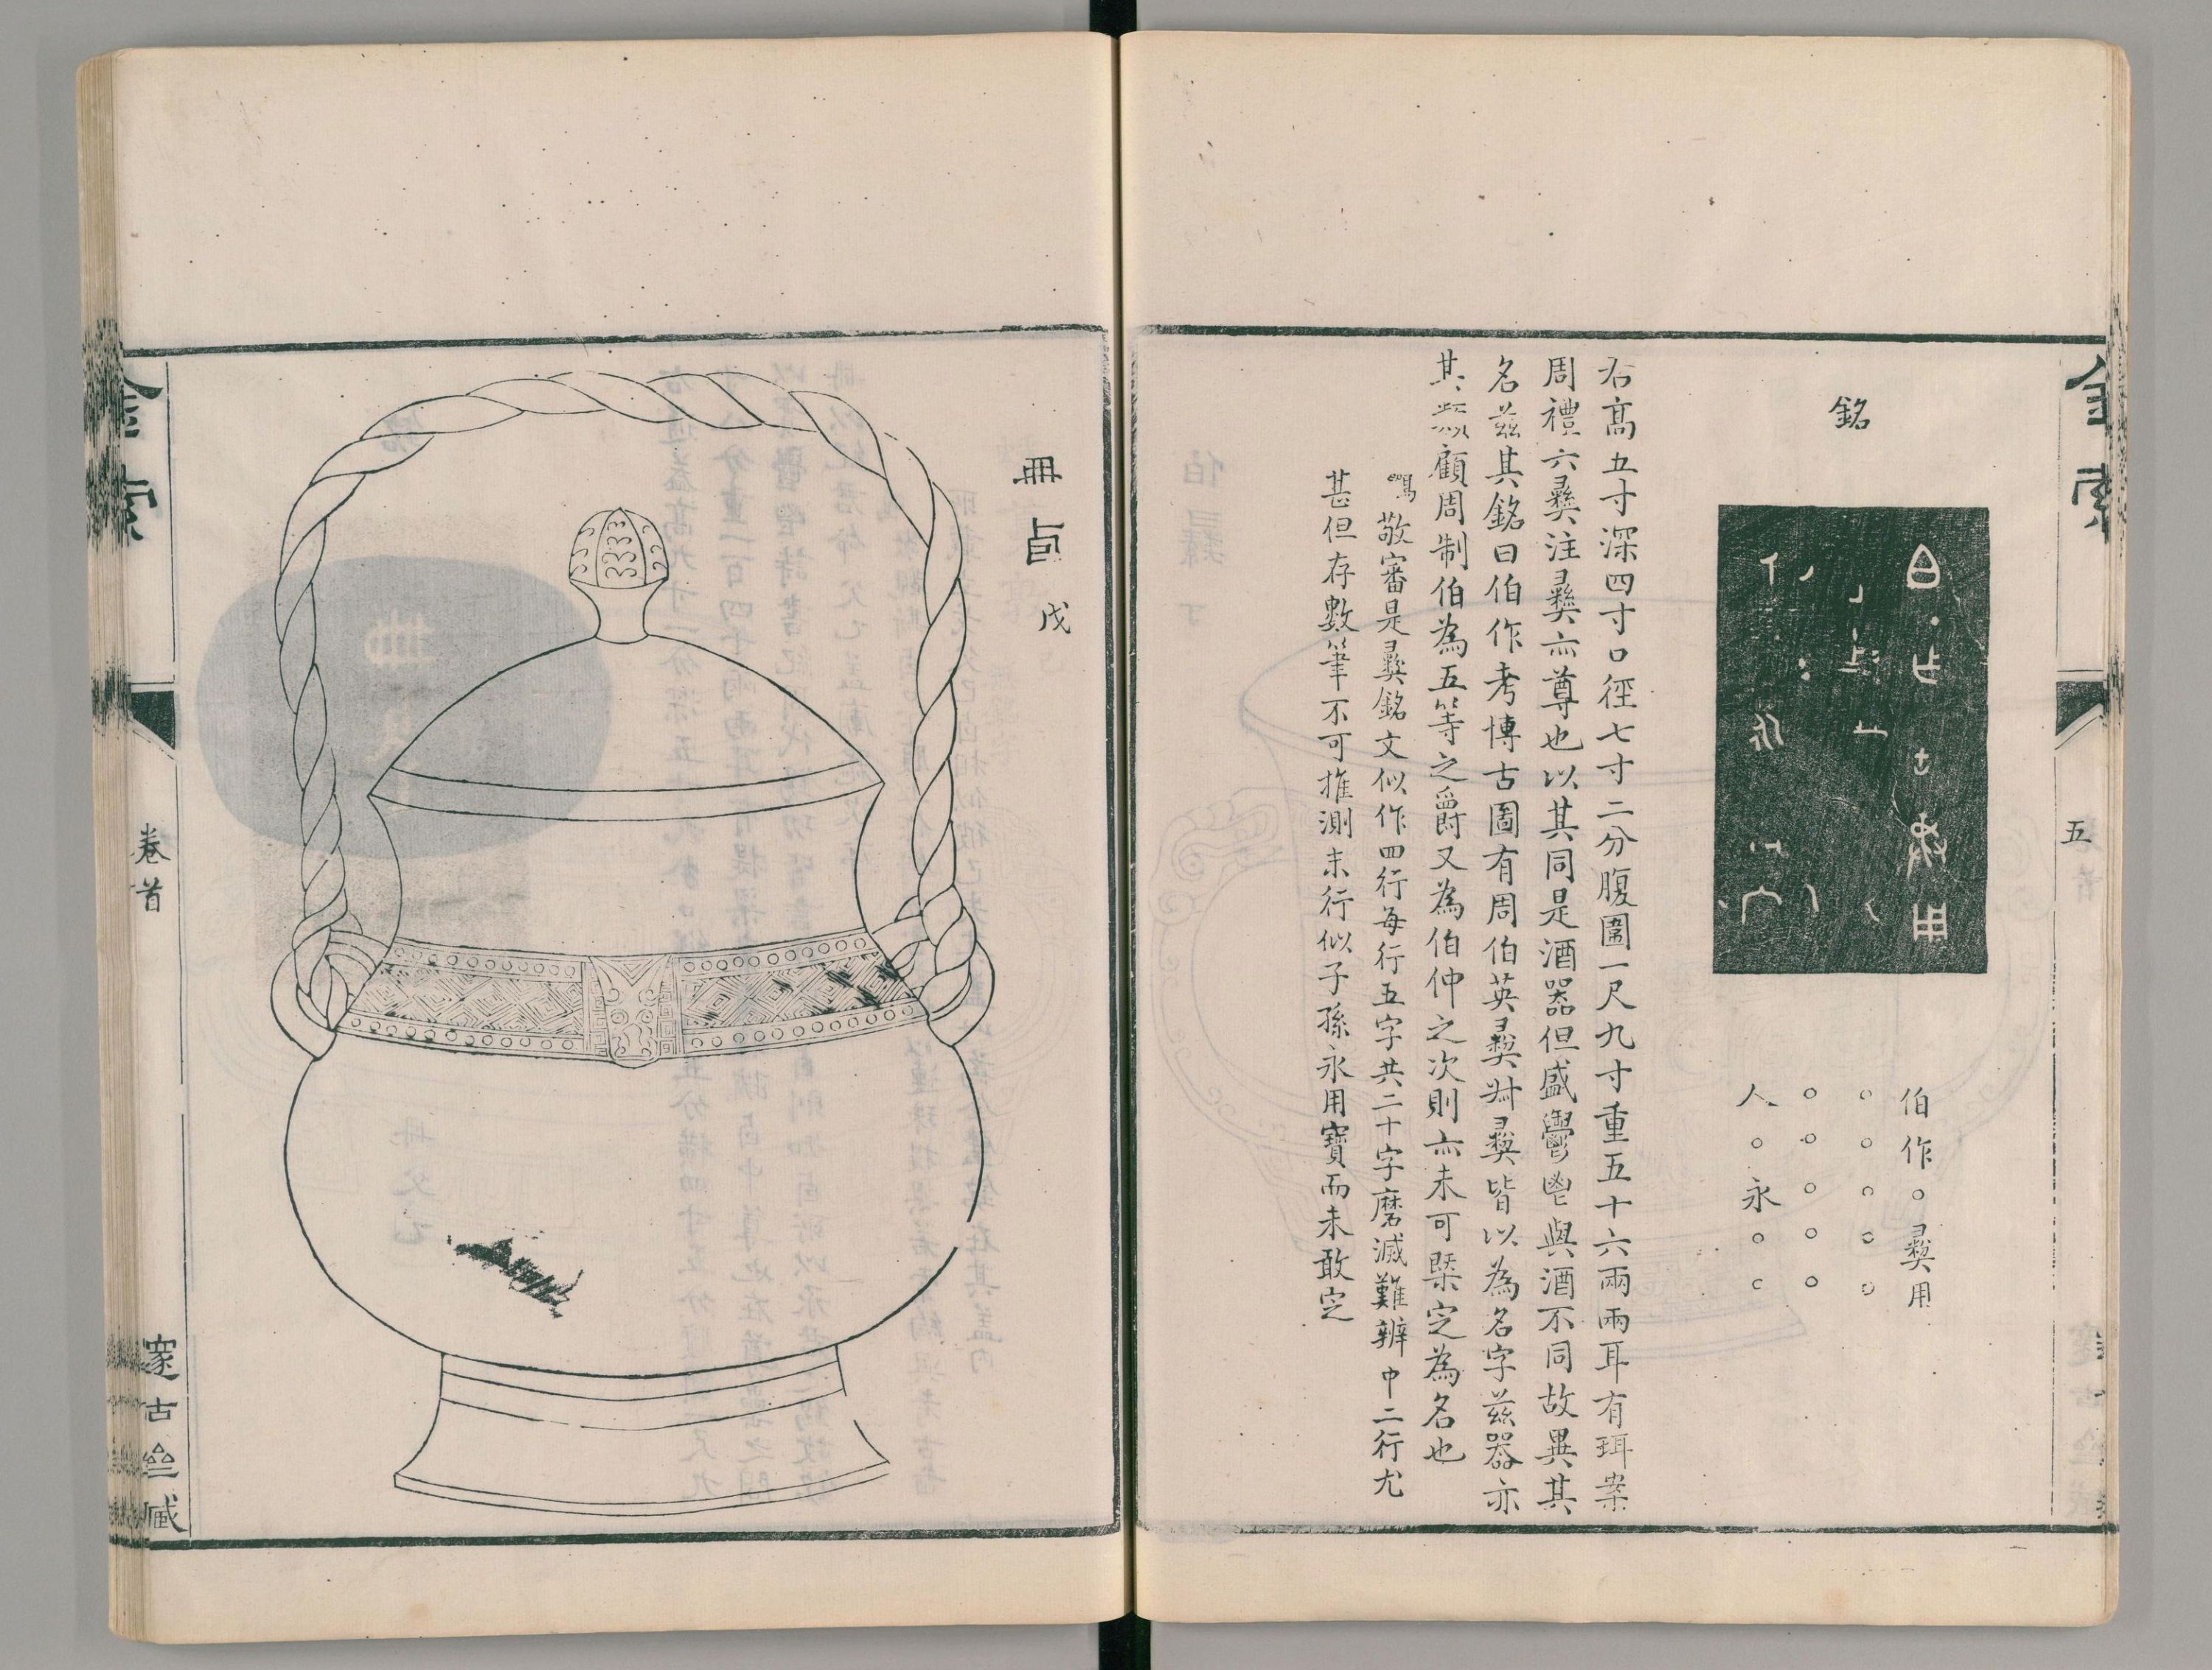 金索
五
銘
伯作○彝用
○○○○○
○○○○○
人○永○○
右髙五寸深四寸口徑七寸二分腹圍一尺九寸重五十六兩兩耳有珥案
周禮六彝注彝亦尊也以其同是酒器但盛鬱鬯與酒不同故異其
名茲其銘曰伯作考博古圖有周伯英彝叔彝皆以為名字茲器亦
其類顧周制伯為五等之爵又為伯仲之次則亦未可槩定為名也
敬審是彝銘文似作四行每行五字共二十字磨滅難辨中二行尤
甚但存數筆不可推測末行似子孫永用寶而未敢定
冊卣 戊
金索
卷首
邃古齋藏